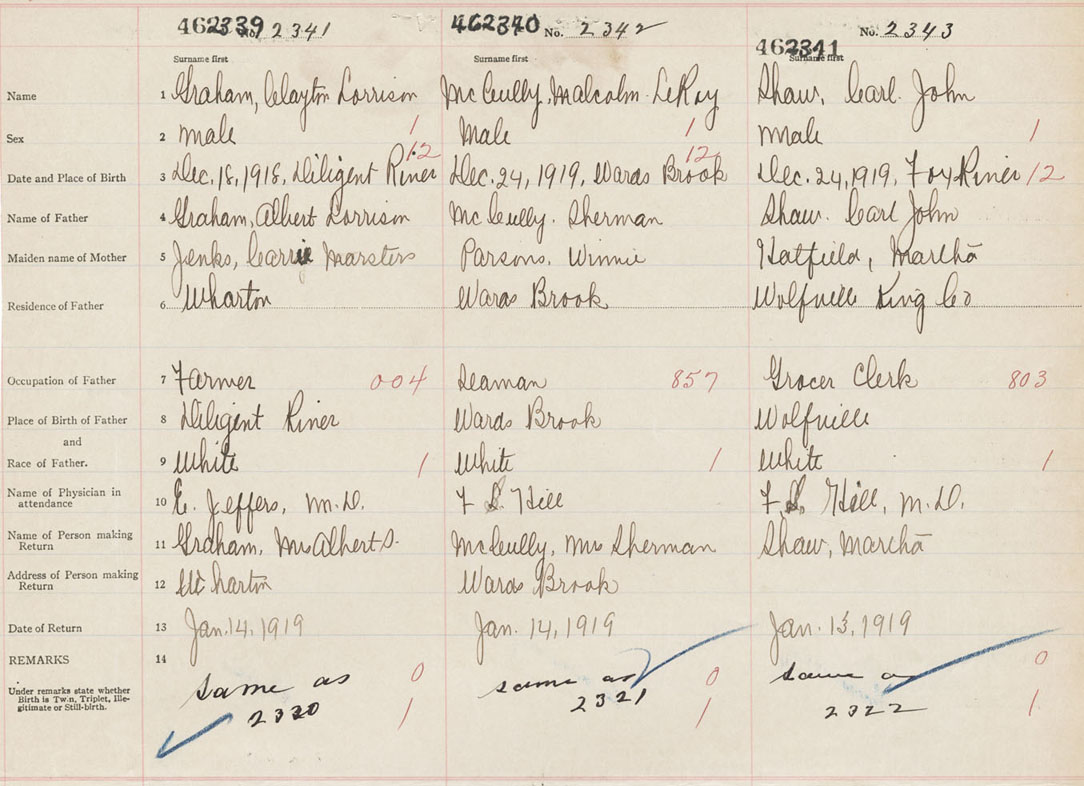 462339 No. 2341 462340 No. 2342 462341 No. 2343
Surname first Surname first Surname first
Name 1 Graham, Clayton Lorrison McCully, Malcolm LeRoy Shaw, Carl John
Sex 2 male 1 Male 1 male 1
Date and Place of Birth 3 Dec. 18, 1918, Diligent River 12 Dec. 24, 1919, Wards Brook 12 Dec. 24, 1919, Fox River 12
Name of Father 4 Graham, Albert Lorrison McCully. Sherman Shaw. Carl John
Maiden name of Mother 5 Jenks, Carrie Marsters Parsons, Winnie Hatfield, Martha
Residence of Father 6 Wharton Wards Brook Wolfville King Co
Occupation of Father 7 Farmer 004 Seaman 857 Grocer Clerk 803
Place of Birth of Father 8 Diligent River Wards Brook Wolfville
and
Race of Father. 9 White 1 White 1 White 1
Name of Physician in
attendance 10 E. Jeffers, M.D. F Hill F. Hill, M.D.
Name of Person making
Return 11 Graham, Mrs Albert McCully, Mrs Sherman Shaw, Martha
Address of Person making
Return 12 Wharton Wards Brook
Date of Return 13 Jan. 14, 1919 Jan. 14, 1919 Jan. 13, 1919
REMARKS 14
Under remarks state whether
Birth is Twin, Triplet, Ille-
gitimate or Still-birth.
same as 0 same as 0 same as 0
2320 1 2321 1 2322 1